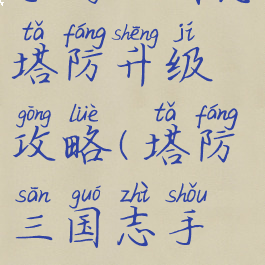 tǎ fáng shēng jí
塔防升级
gōng lüè tǎ fáng
攻略(塔防
sān guó zhì shǒu
三国志手